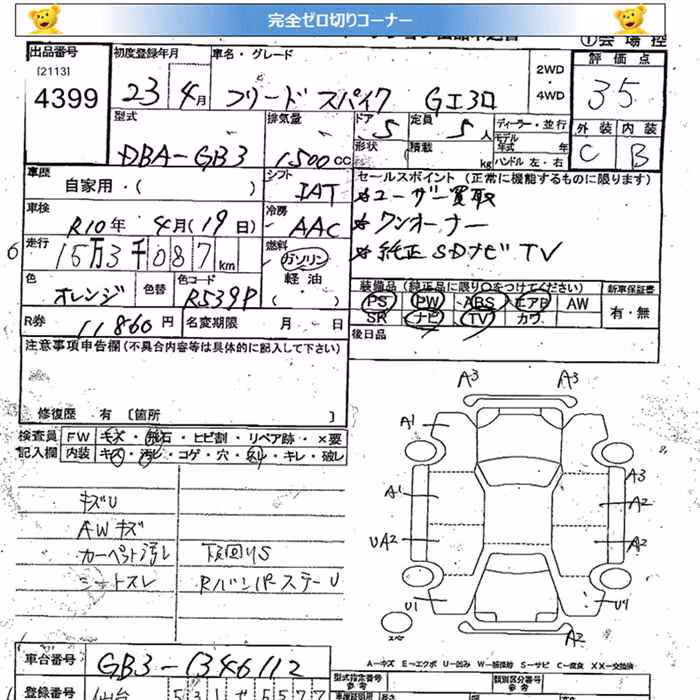 完全ゼロ切りコーナー
①会場控
出品番号
[2113]
4399
初度登録年月
23年4月
車名・グレード
フリード スパイク GIエロ
2WD・4WD
評価点
3.5
型式
DBA-GB3
排気量
1500cc
ドア
5
定員
5人
形状
積載
kg
ディーラー・並行
モデル年式 年
ハンドル 左・右
外装
C
内装
B
車歴
自家用・( )
シフト
IAT
セールスポイント (正常に機能するものに限ります)
*ユーザー買取
*ワンオーナー
*純正SDナビTV
車検
R10年 4月(19日)
冷房
AAC
走行
15万3千087km
燃料
ガソリン
軽油
( )
色
オレンジ
色替
色コード
R539P
装備品(純正品に限り○をつけてください)
PS PW ABS エアB AW
SR ナビ TV カワ
新車保証書
有・無
R券
11,860円
名変期限 月 日
後日品
注意事項申告欄(不具合内容等は具体的に記入して下さい)
修復歴 有 [箇所 ]
検査員記入欄
FW キズ・飛石・ヒビ割・リペア跡・×要
内装 キズ・汚レ・コゲ・穴・スレ・キレ・破レ
キズU
AWキズ
カーペット汚レ
シートスレ
下回りS
RバンパーステーU
A3 A3
A1
A1 A3
A2
UA2 A2
U1 U1
スペア
A2
A-キズ E-エクボ U-凹み W-補修跡 S-サビ C-腐食 XX-交換済
車台番号
GB3-1346112
型式指定番号
類別区分番号
登録番号
仙台 531 せ 5577
長さ